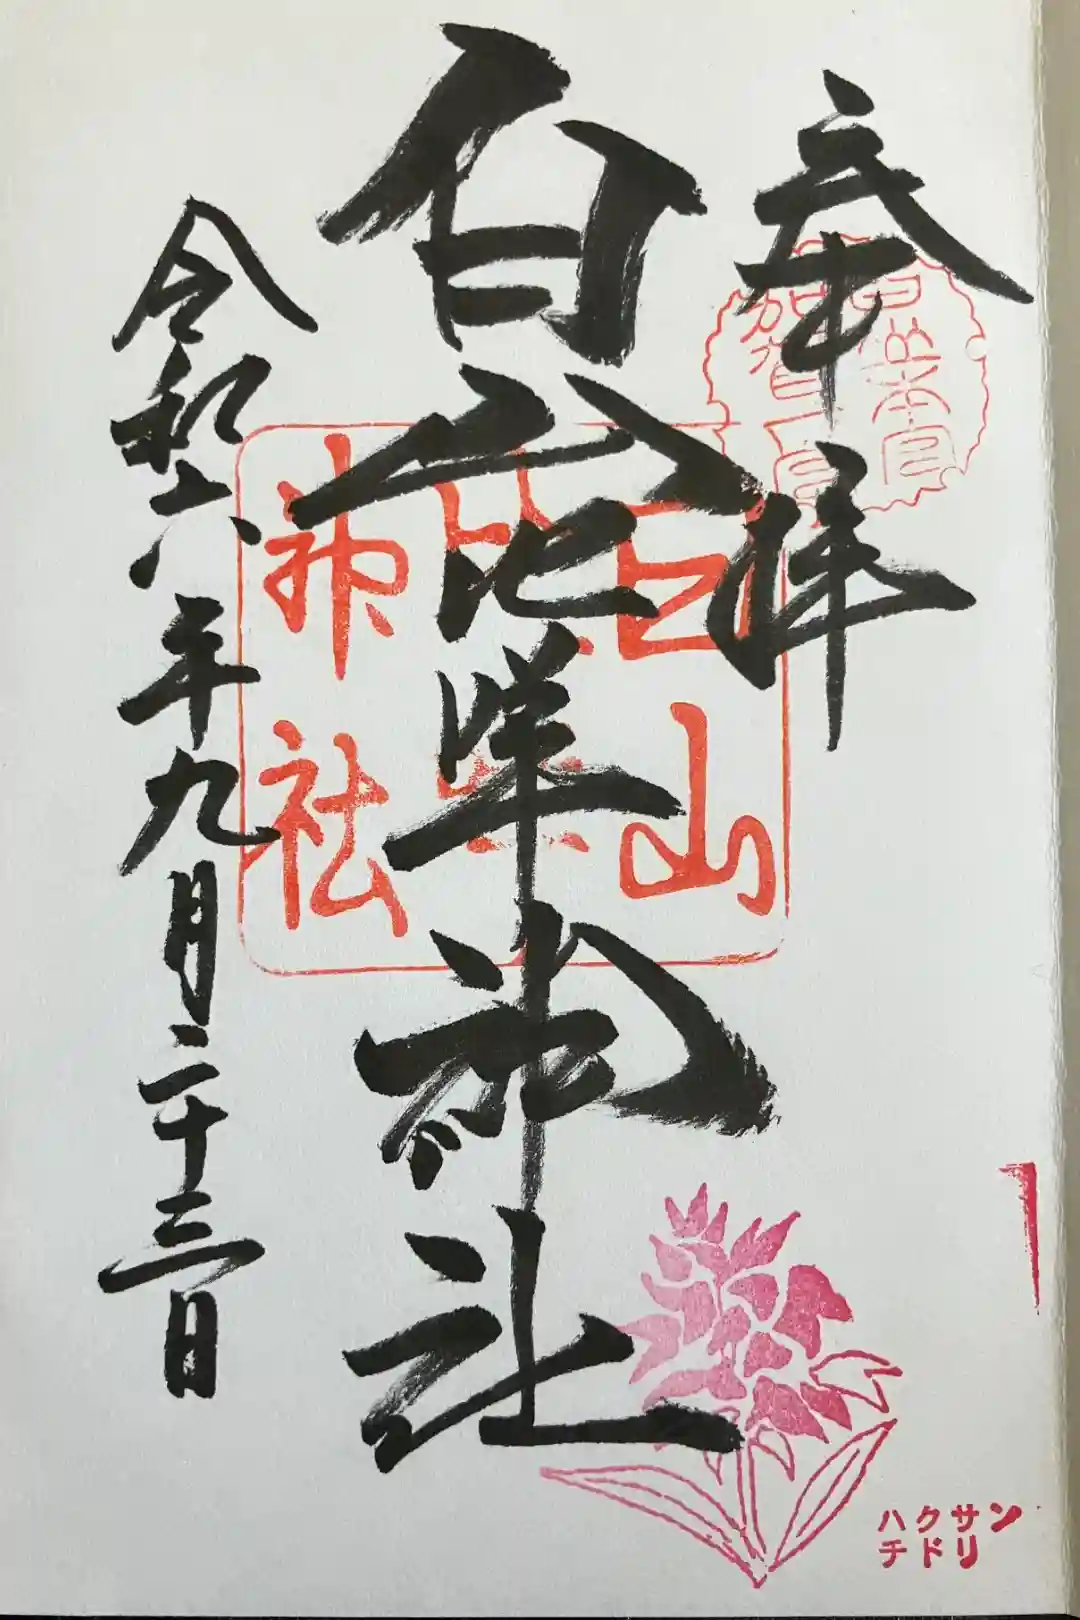 奉拝
白山比咩神社
令和六年九月二十三日
白山比咩神社
ハクサン
チドリ